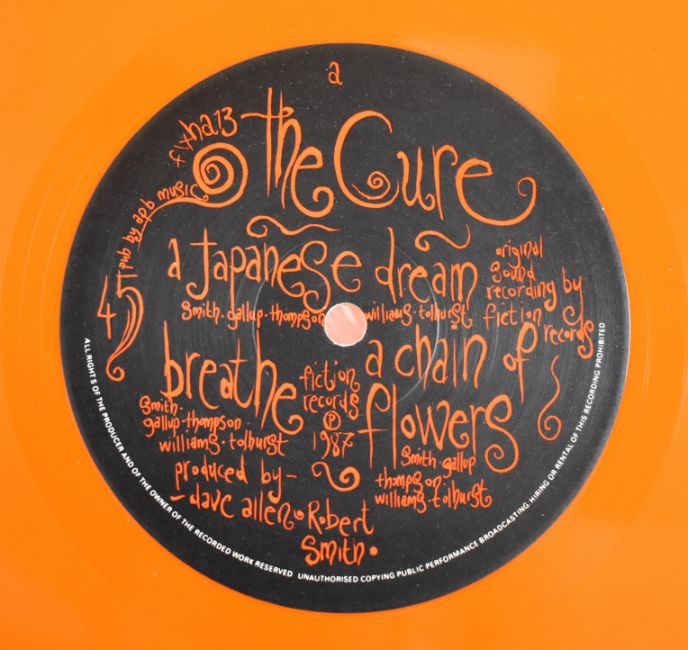 a
fixha13
the Cure
pub by apb music
a Japanese dream
original
sound
recording by
fiction
records
45
Smith·gallup·thompson williams·tolhurst
breathe
Smith·
gallup·thompson
williams·tolhurst
fiction
records
℗
1987
a chain of
flowers
Smith·gallup
thompson·
williams·tolhurst
produced by–
–dave allen·Robert
Smith·
ALL RIGHTS OF THE PRODUCER AND OF THE OWNER OF THE RECORDED WORK RESERVED UNAUTHORISED COPYING PUBLIC PERFORMANCE BROADCASTING HIRING OR RENTAL OF THIS RECORDING PROHIBITED